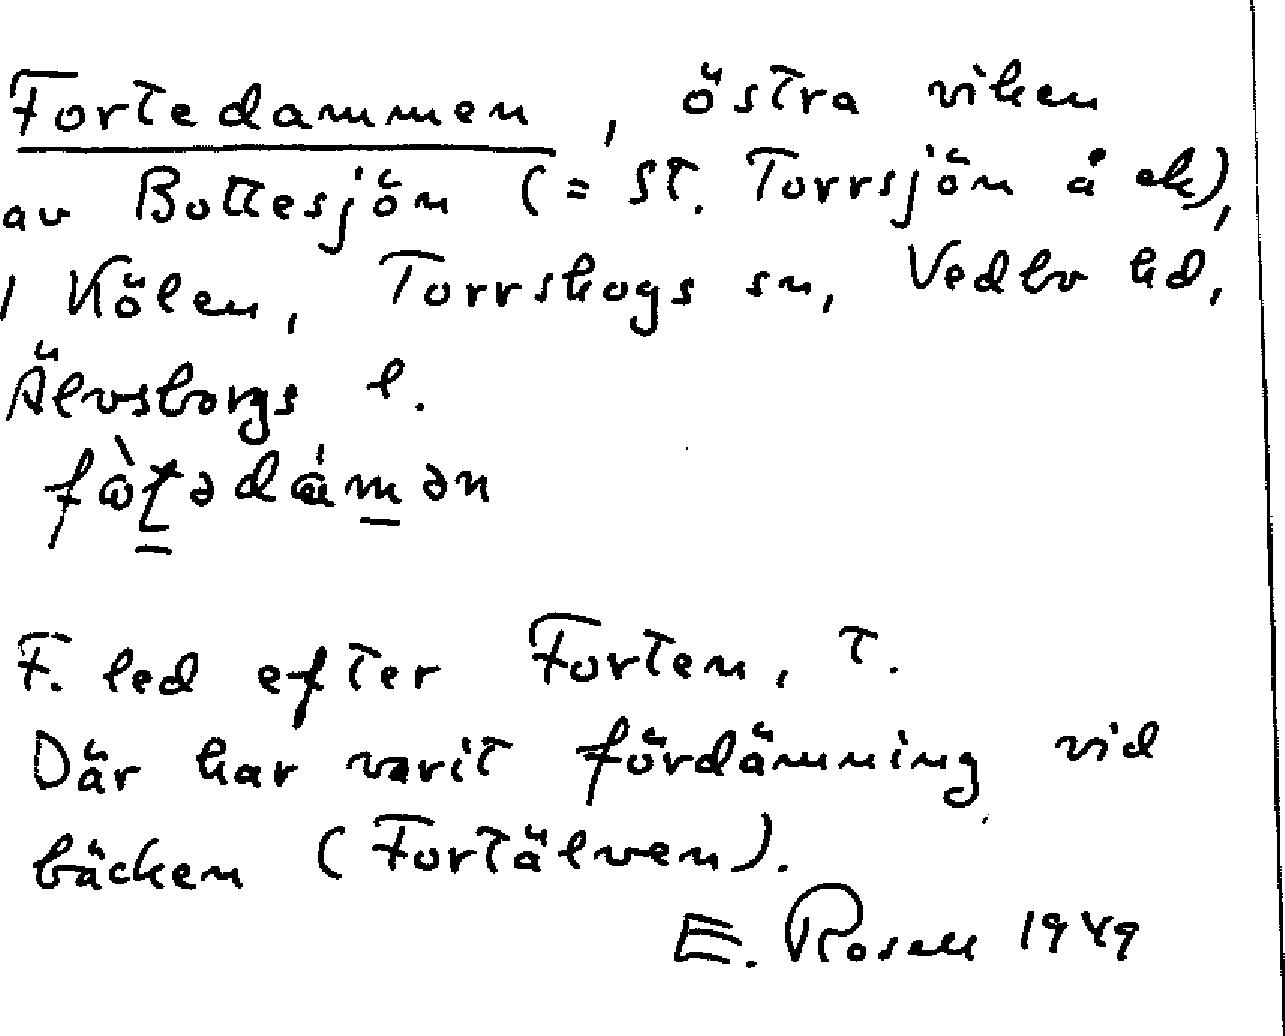 Fortedammen, östra viken
av Bottesjön (= St. Torrsjön å ek),
i Kölen, Torrskogs sn, Vedbo hd,
Älvsborgs l.
fò̀ʈədámən
F. led efter Forten, t.
Där har varit fördämning vid
bäcken (Fortälven).
E. Rosell 1949